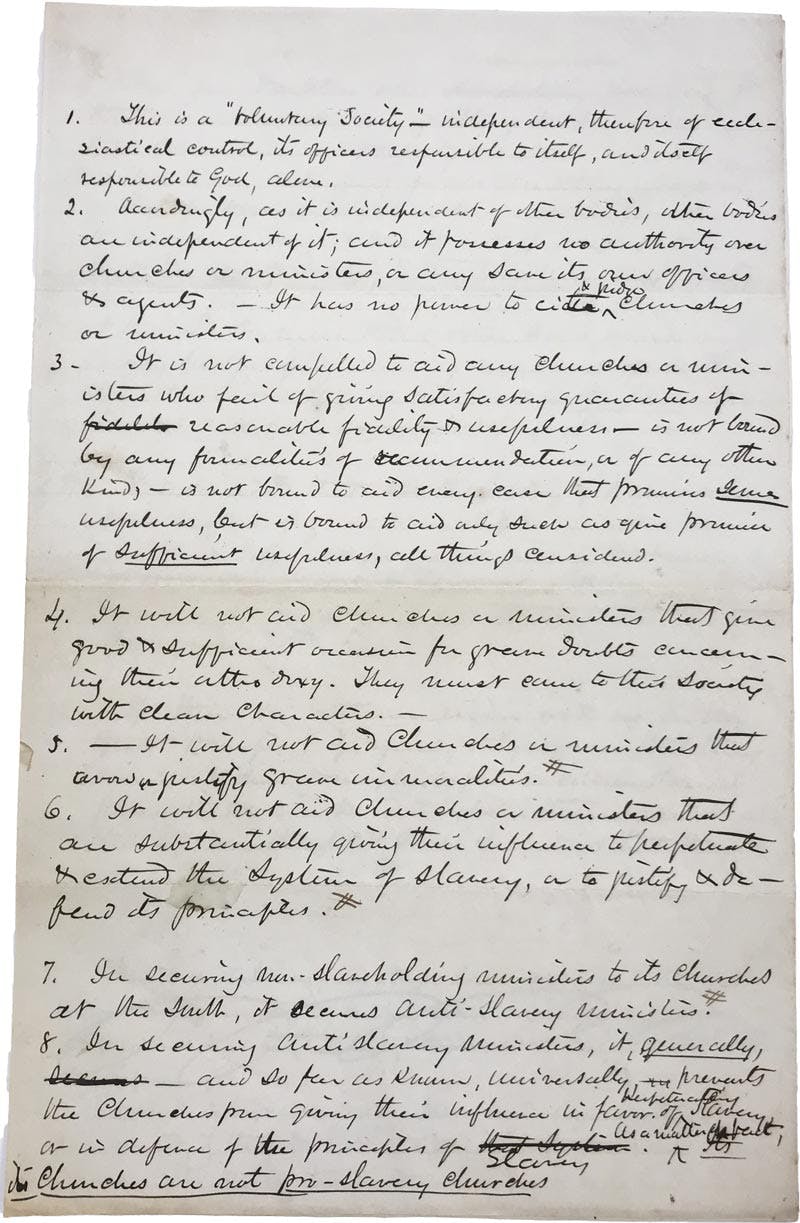 1. This is a "Voluntary Society" — independent, therefore of eccle-
siastical control, its officers responsible to itself, and itself
responsible to God, alone.
2. Accordingly, as it is independent of other bodies, other bodies
are independent of it; and it possesses no authority over
churches or ministers, or any save its own officers
& agents. — It has no power to cite & judge Churches
or ministers.
3 - It is not compelled to aid any Churches or min-
isters who fail of giving satisfactory guaranties of
fidelity reasonable fidelity & usefulness — is not bound
by any formalities of recommendation, or of any other
kind, — is not bound to aid every case that promises some
usefulness, but is bound to aid only such as give promise
of sufficient usefulness, all things considered.
4. It will not aid churches or ministers that give
good & sufficient occasion for grave doubts concern-
ing their orthodoxy. They must come to this Society
with clean characters. —
5. — It will not aid Churches or ministers that
avow or justify grave immoralities. #
6. It will not aid Churches or ministers that
are substantially giving their influence to perpetuate
& extend the System of Slavery, or to justify & de-
fend its principles. #
7. In securing non-slaveholding ministers to its Churches
at the South, it secures anti-slavery ministers. #
8. In securing anti slavery ministers, it, generally,
secures — and so far as known, universally, prevents
the Churches from giving their influence in favor of perpetuating Slavery,
or in defence of the principles of that System Slavery. As a matter of fact, Its
its Churches are not pro-slavery churches